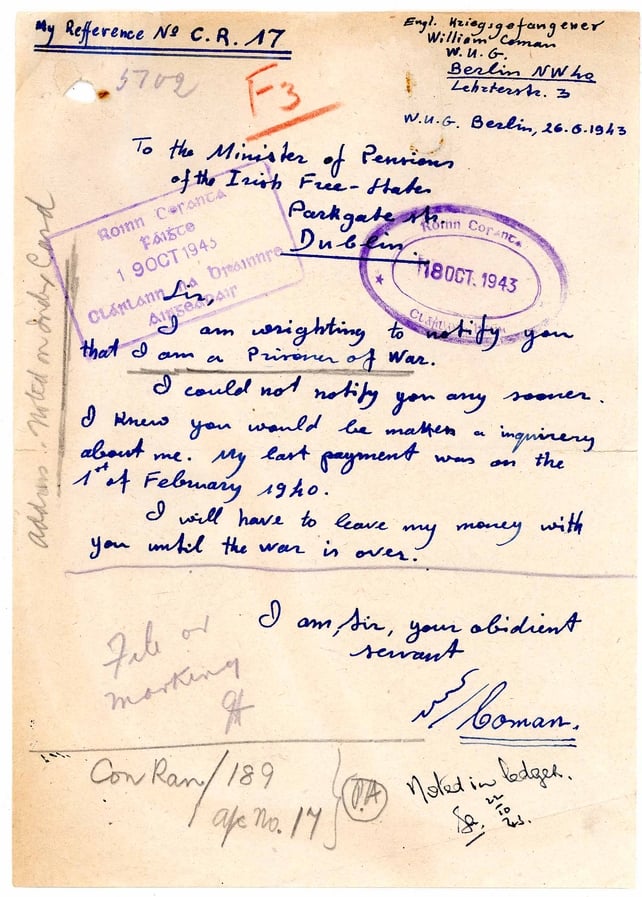 My Refference No C.R. 17
5702
F3
Engl. Kriegsgefangener
William Coman
W.U.G.
Berlin NW40
Lehrterstr. 3
W.U.G. Berlin, 26.6.1943
To the Minister of Pensions
of the Irish Free-State
Parkgate str.
Dublin
Roinn Cosanta
Páiste
19 OCT 1943
Clárlann na
Airgeadair
Roinn Cosanta
18 OCT. 1943
Sir,
I am wrighting to notify you
that I am a Prisoner of War.
I could not notify you any sooner.
I knew you would be matken a inquirery
about me. My last payment was on the
1st of February 1940.
I will have to leave my money with
you until the war is over.
I am, Sir, your obidient
servant
W Coman.
address .. Noted on Index Card
File or
marking
Con Ran/189
a/c No. 17
P.A
Noted in ledger.
22
10
43.